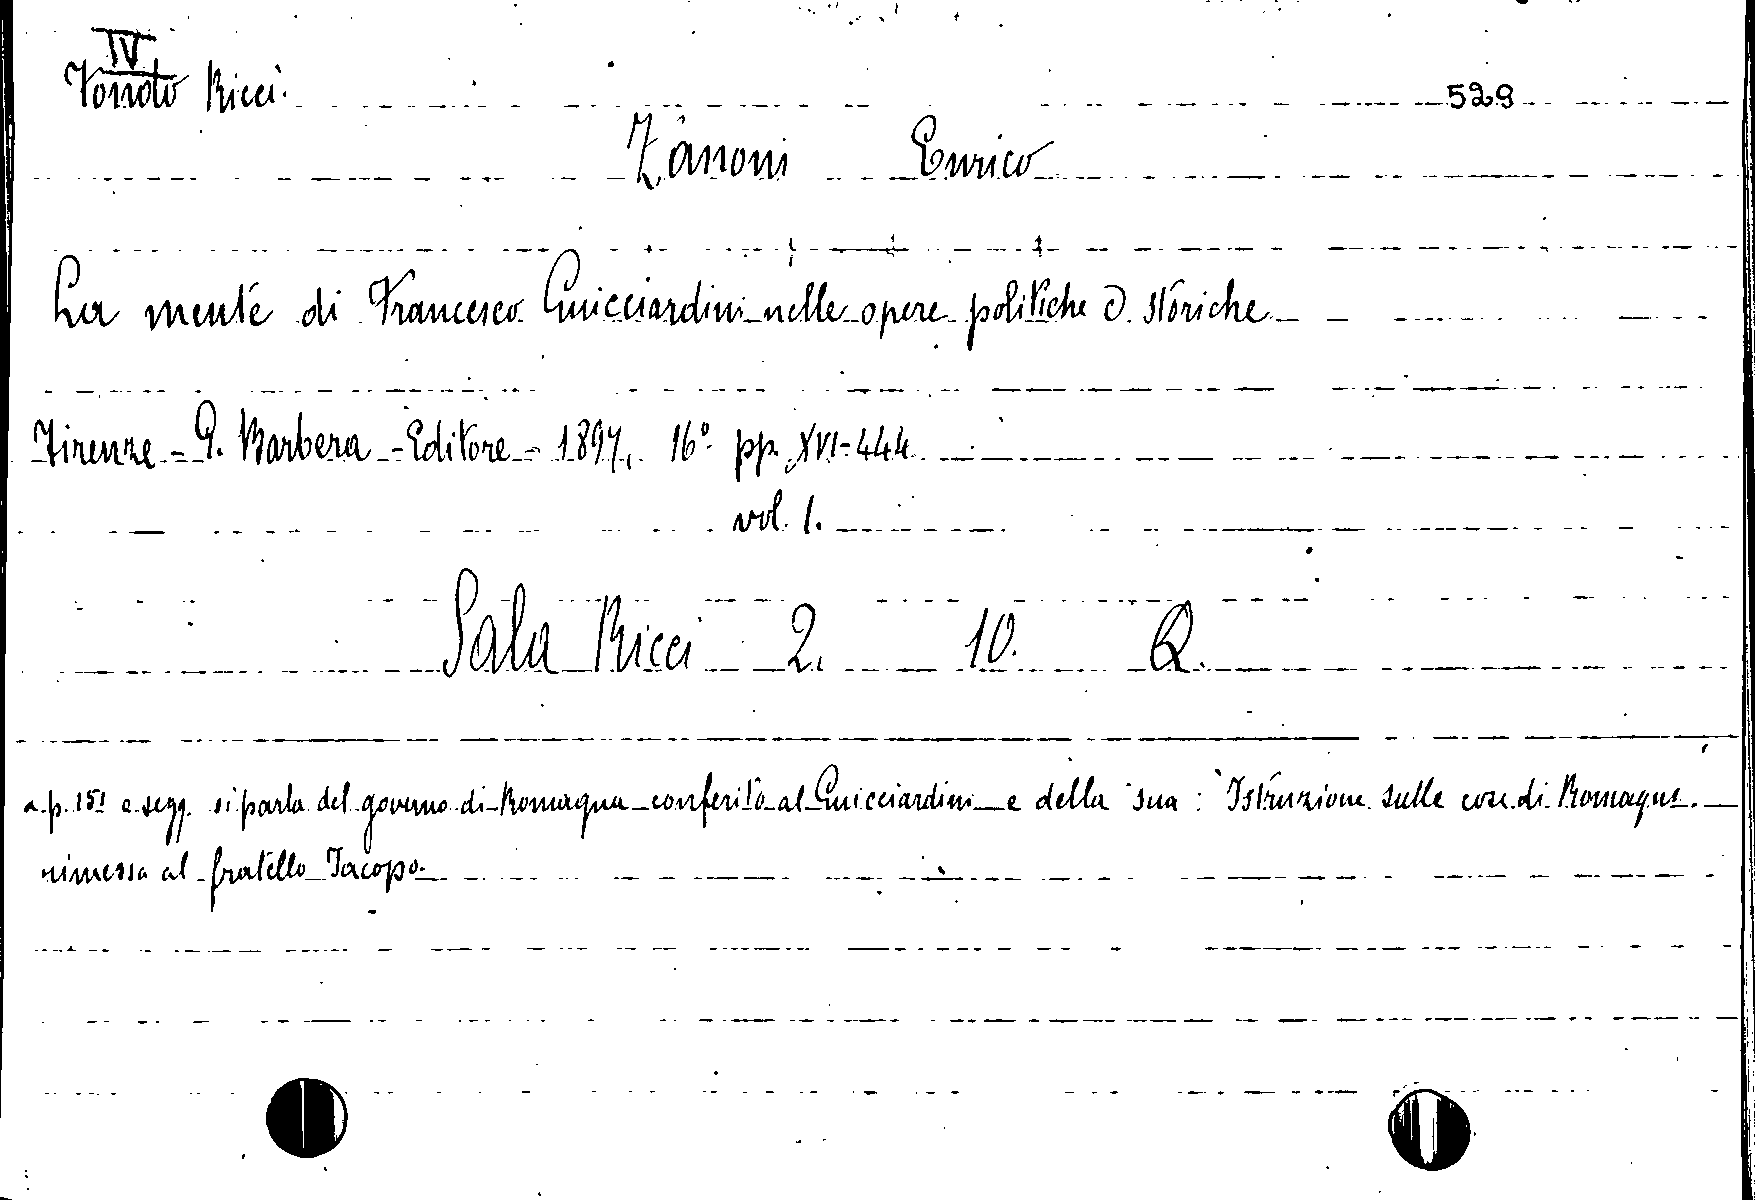 IV
Fondo Ricci.
529
Zanoni Enrico
La mente di Francesco Guicciardini nelle opere politiche e storiche
Firenze - G. Barbera - Editore - 1897. 16° pp. XVI-444
vol. 1.
Sala Ricci 2. 10. Q.
a p. 151 e segg. si parla del governo di Romagna conferito al Guicciardini e della sua: Istruzione sulle cose di Romagna.
rimessa al fratello Jacopo.